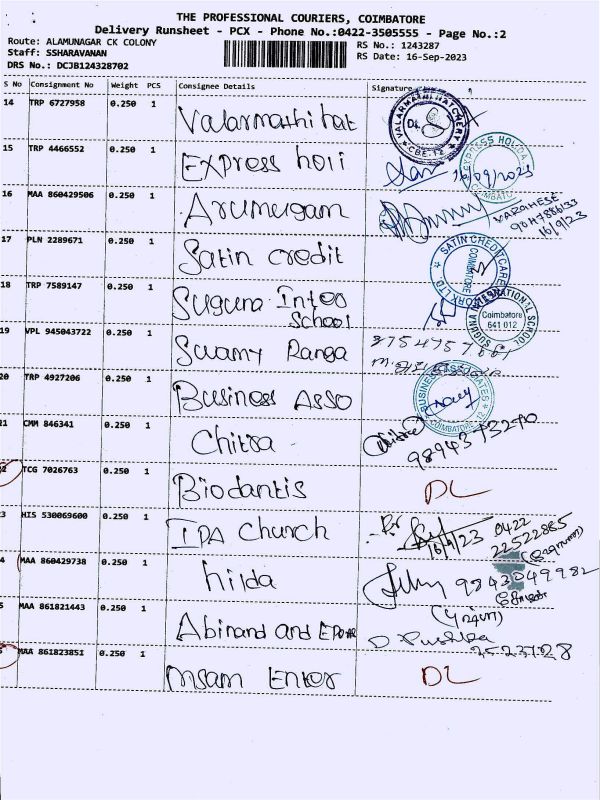 THE PROFESSIONAL COURIERS, COIMBATORE
Delivery Runsheet - PCX - Phone No.:0422-3505555 - Page No.:2
Route: ALAMUNAGAR CK COLONY RS No.: 1243287
Staff: SSHARAVANAN RS Date: 16-Sep-2023
DRS No.: DCJB124328702
S No Consignment No Weight PCS Consignee Details Signature
14 TRP 6727958 0.250 1 Valarmathi hat VALARMATHI HATCHERY CBE-12
15 TRP 4466552 0.250 1 Express holi 16/09/2023
16 MAA 860429506 0.250 1 Arumugam VARGHESE
16/9/23
17 PLN 2289671 0.250 1 Satin credit SATIN CREDITCARE COIMBATORE
18 TRP 7589147 0.250 1 Suguna Inter
School SUGUNA INTERNATIONAL SCHOOL Coimbatore 641 012
19 VPL 945043722 0.250 1 Swamy Ranga
20 TRP 4927206 0.250 1 Business Asso BUSINESS ASSOCIATES COIMBATORE-12
21 CMM 846341 0.250 1 Chitra 9894373270
22 TCG 7026763 0.250 1 Biodantis DL
3 HIS 530069600 0.250 1 IPA Church 16/9/23 0422
22522885
4 MAA 860429738 0.250 1 hilda 9843049982
5 MAA 861821443 0.250 1 Abinand and D. Pushba
2523728
MAA 861823851 0.250 1 msam Enter DL